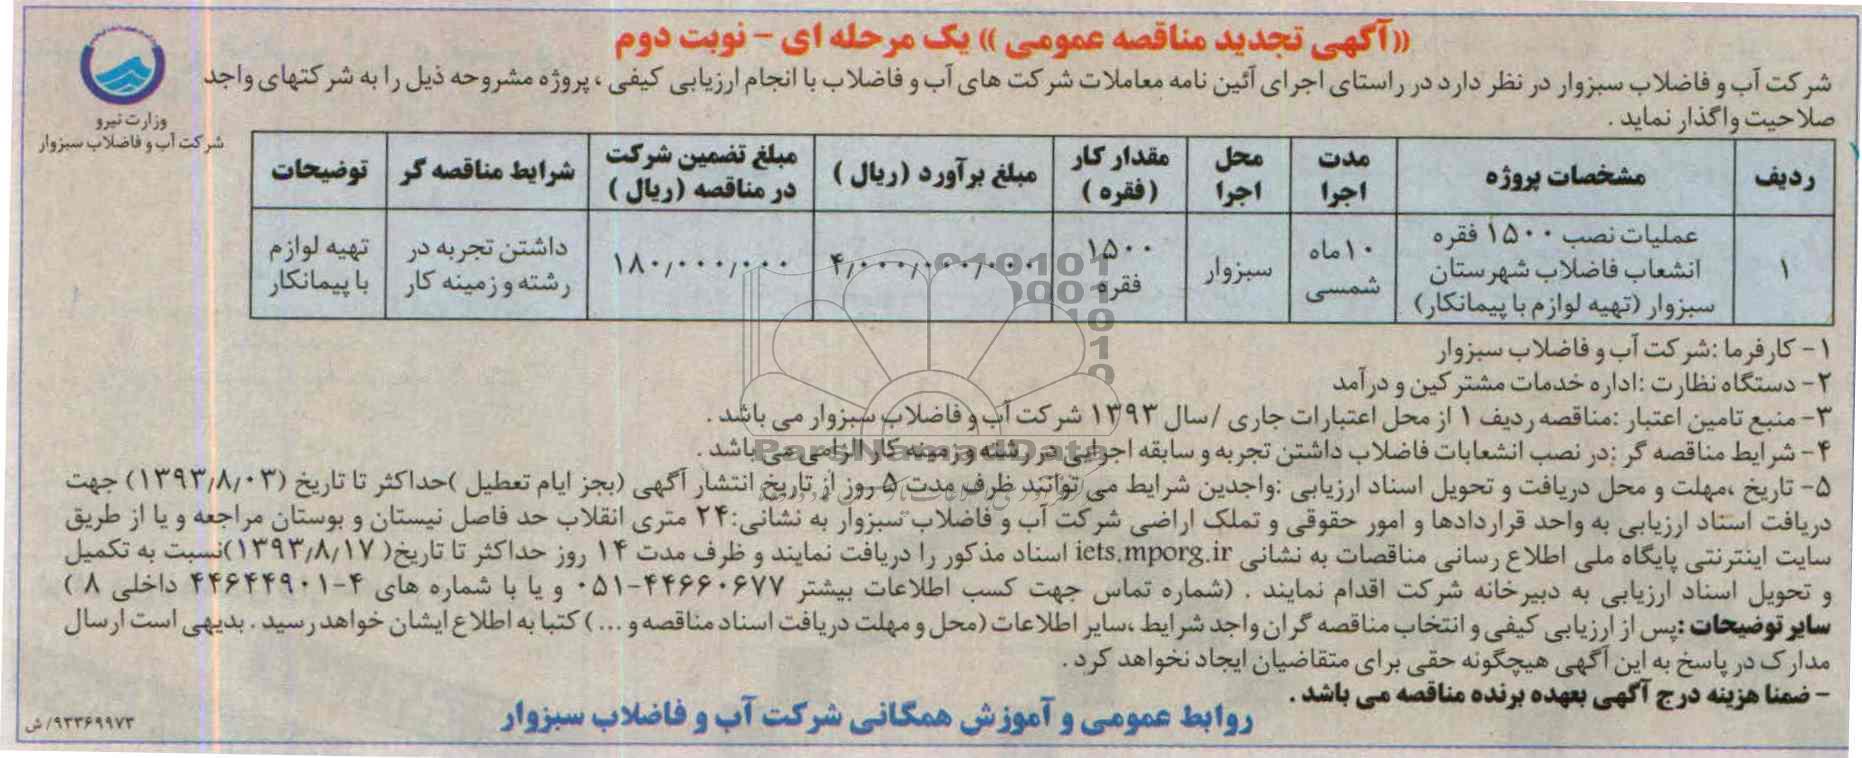 «آگهی تجدید مناقصه عمومی» یک مرحله ای - نوبت دوم
وزارت نیرو
شرکت آب و فاضلاب سبزوار
شرکت آب و فاضلاب سبزوار در نظر دارد در راستای اجرای آئین نامه معاملات شرکت های آب و فاضلاب با انجام ارزیابی کیفی ، پروژه مشروحه ذیل را به شرکتهای واجد
صلاحیت واگذار نماید .
ردیف | مشخصات پروژه | مدت اجرا | محل اجرا | مقدار کار (فقره) | مبلغ برآورد (ریال) | مبلغ تضمین شرکت در مناقصه (ریال) | شرایط مناقصه گر | توضیحات
۱ | عملیات نصب ۱۵۰۰ فقره انشعاب فاضلاب شهرستان سبزوار (تهیه لوازم با پیمانکار) | ۱۰ ماه شمسی | سبزوار | ۱۵۰۰ فقره | ۴,۰۰۰,۰۰۰,۰۰۰ | ۱۸۰,۰۰۰,۰۰۰ | داشتن تجربه در رشته و زمینه کار | تهیه لوازم با پیمانکار
۱- کارفرما :شرکت آب و فاضلاب سبزوار
۲- دستگاه نظارت :اداره خدمات مشترکین و درآمد
۳- منبع تامین اعتبار :مناقصه ردیف ۱ از محل اعتبارات جاری /سال ۱۳۹۳ شرکت آب و فاضلاب سبزوار می باشد .
۴- شرایط مناقصه گر :در نصب انشعابات فاضلاب داشتن تجربه و سابقه اجرایی در رشته و زمینه کار الزامی می باشد .
۵- تاریخ ،مهلت و محل دریافت و تحویل اسناد ارزیابی :واجدین شرایط می توانند ظرف مدت ۵ روز از تاریخ انتشار آگهی (بجز ایام تعطیل )حداکثر تا تاریخ (۱۳۹۳/۸/۰۳) جهت
دریافت اسناد ارزیابی به واحد قراردادها و امور حقوقی و تملک اراضی شرکت آب و فاضلاب سبزوار به نشانی:۲۴ متری انقلاب حد فاصل نیستان و بوستان مراجعه و یا از طریق
سایت اینترنتی پایگاه ملی اطلاع رسانی مناقصات به نشانی iets.mporg.ir اسناد مذکور را دریافت نمایند و ظرف مدت ۱۴ روز حداکثر تا تاریخ( ۱۳۹۳/۸/۱۷)نسبت به تکمیل
و تحویل اسناد ارزیابی به دبیرخانه شرکت اقدام نمایند . (شماره تماس جهت کسب اطلاعات بیشتر ۴۴۶۶۰۶۷۷-۰۵۱ و یا با شماره های ۴-۴۴۶۴۴۹۰۱ داخلی ۸ )
سایر توضیحات :پس از ارزیابی کیفی و انتخاب مناقصه گران واجد شرایط ،سایر اطلاعات (محل و مهلت دریافت اسناد مناقصه و ...) کتبا به اطلاع ایشان خواهد رسید . بدیهی است ارسال
مدارک در پاسخ به این آگهی هیچگونه حقی برای متقاضیان ایجاد نخواهد کرد .
- ضمنا هزینه درج آگهی بعهده برنده مناقصه می باشد .
روابط عمومی و آموزش همگانی شرکت آب و فاضلاب سبزوار
۹۳۳۶۹۹۷۳/ش
ParsNamadData